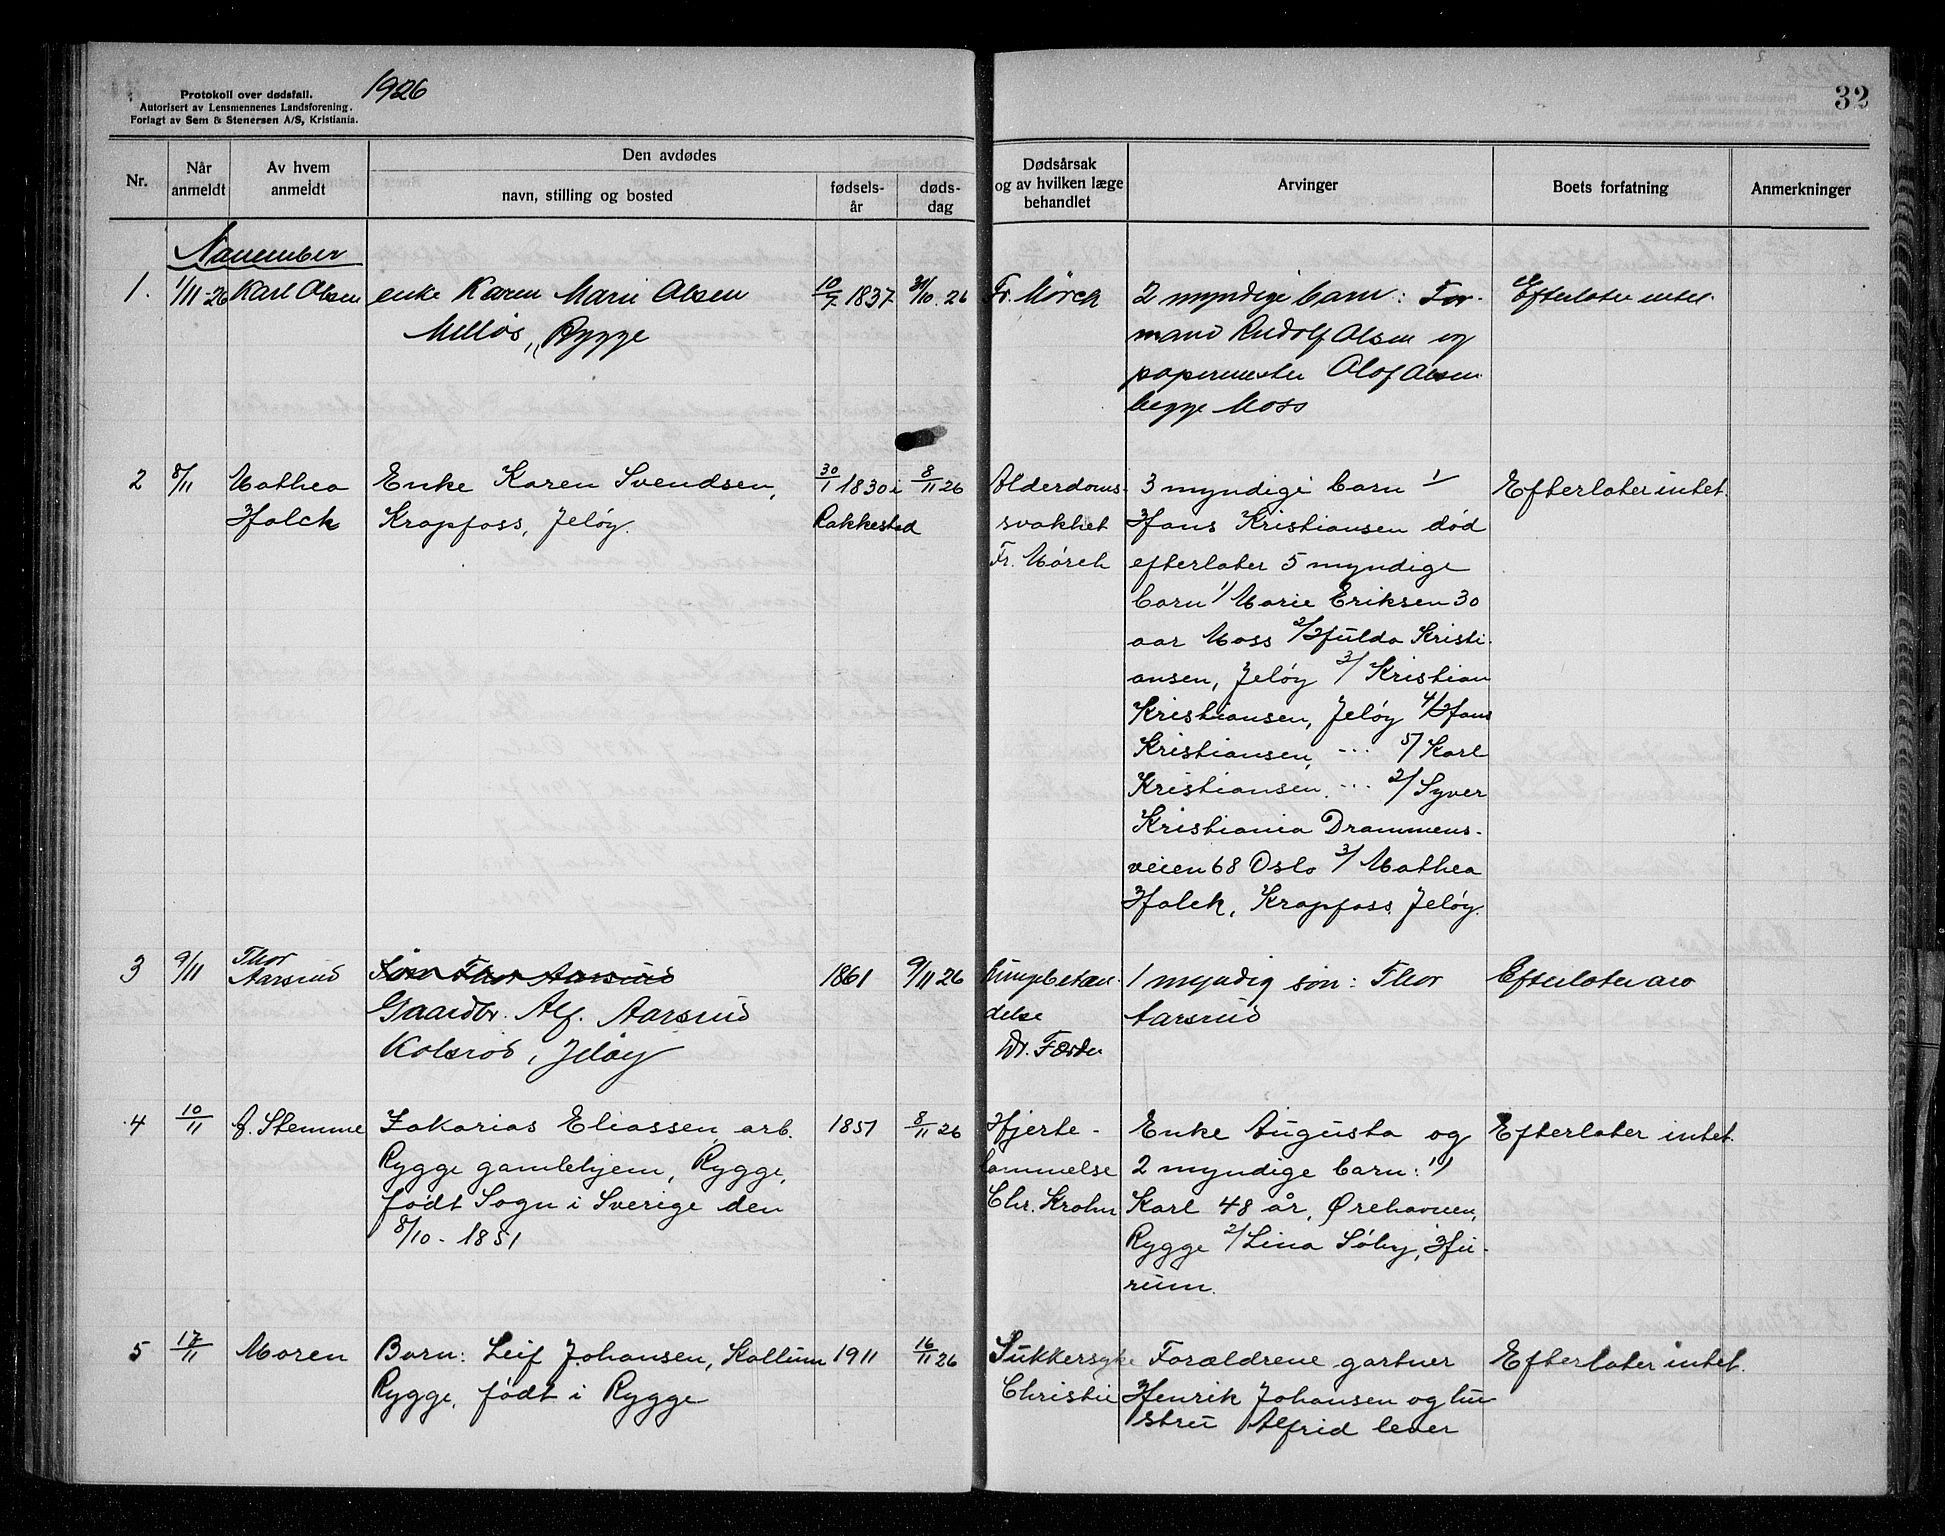 1926
Protokoll over dødsfall.
Autorisert av Lensmennenes Landsforening.
Forlagt av Sem & Stenersen A/S, Kristiania.
32
Nr.
Når anmeldt
Av hvem anmeldt
Den avdødes
navn, stilling og bosted
fødsels-
år
døds-
dag
Dødsårsak
og av hvilken læge
behandlet
Arvinger
Boets forfatning
Anmerkninger
November
1. 1/11-26 Karl Olsen enke Karen Marie Olsen 10/7 1837 31/10. 26 Fr. Mørch 2 myndige barn: For- Efterlater intet.
Melløs, Rygge mand Rudolf Olsen og
papermester Olof Olsen
begge Moss
2 8/11 Mathea Enke Karen Svendsen, 30/1 1830 i 8/11 26 Alderdoms- 3 myndige barn 1/ Efterlater intet.
Halck Krapfoss, Jeløy. Rakkestad svakhet Hans Kristiansen død
Fr. Mørch efterlater 5 myndige
barn 1/ Marie Eriksen 30
aar Moss 2/ Hulda Kristi-
ansen, Jeløy 3/ Kristian
Kristiansen, Jeløy 4/ Hans
Kristiansen, --- 5/ Karl
Kristiansen, --- 2/ Syver
Kristiania Drammens-
veien 68 Oslo 3/ Mathea
Halck, Krapfoss Jeløy.
3 9/11 Thor Aarsrud Søn Thor Aarsrud 1861 9/11 26 1 myndig søn: Thor Efterlater
Gaardbr. Alf. Aarsrud delse Aarsrud
Kolsrod, Jeløy Dr. Færden
4 10/11 J. Stemme Zakarias Eliassen arb. 1851 8/11 26 Hjerte- Enke Augusta og Efterlater intet.
Rygge gamlehjem, Rygge, lammelse 2 myndige barn: 1/
født Sogn i Sverige den Chr. Krohn Karl 48 år, Ørehavnen,
8/10 - 1851 Rygge 2/ Lina Søby, Hu-
rum.
5 17/11 Moren Barn: Leif Johansen, Kallum 1911 16/11 26 Sukkersyke Forældrene gartner Efterlater intet.
Rygge, født i Rygge Christie Henrik Johansen og hu-
stru Alfrid lever